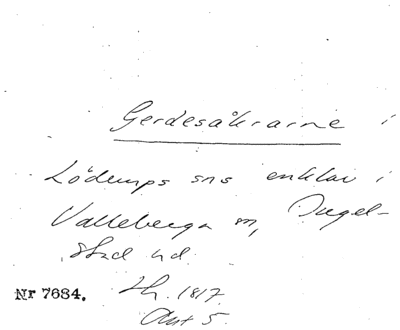 Gerdesåkrarne i
Löderups sns enklav i
Valleberga sn, Ingel-
stad hd
Nr 7684. Lh. 1817.
Akt 5.